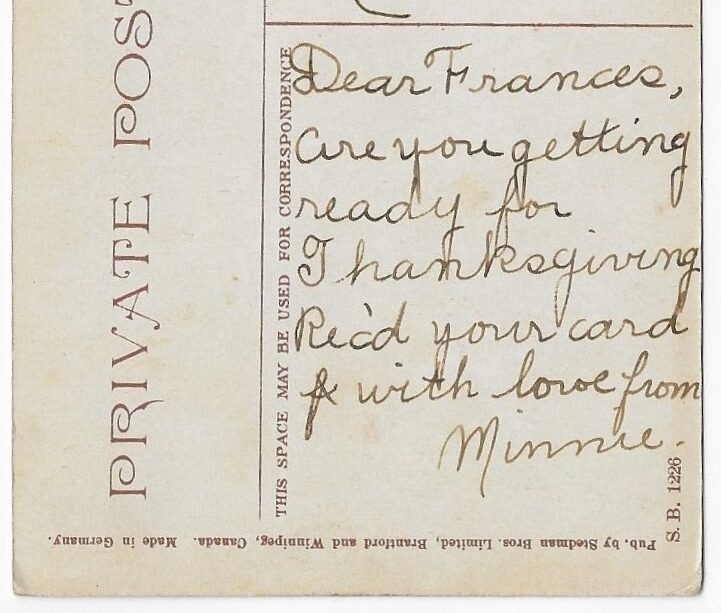 PRIVATE POST
THIS SPACE MAY BE USED FOR CORRESPONDENCE
Dear Frances,
are you getting
ready for
Thanksgiving
Rec'd your card
& with love from
Minnie.
S. B. 1226
Pub. by Stedman Bros. Limited, Brantford and Winnipeg, Canada. Made in Germany.